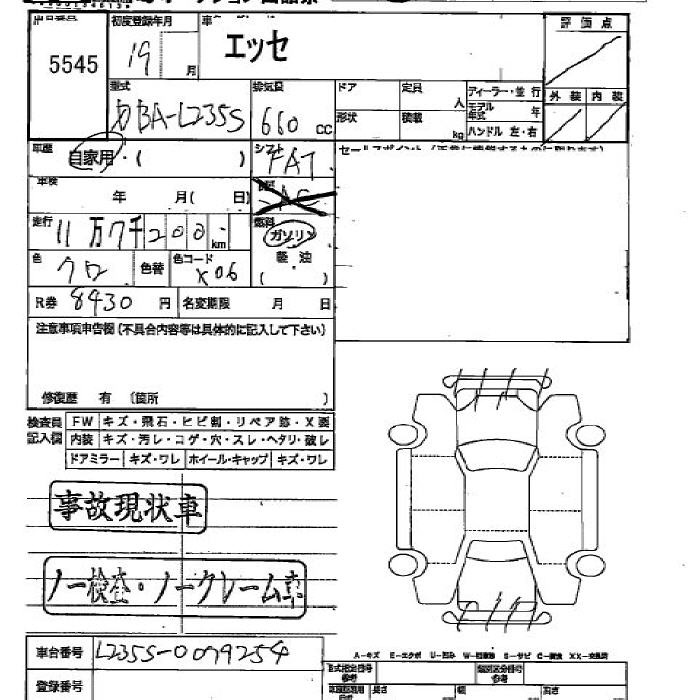 初度登録年月
5545
19
月
エッセ
評価点
型式
DBA-L235S
排気量
660 CC
ドア
定員
人
形状
積載
kg
ディーラー・並行
モデル年式
年
ハンドル 左・右
外装 内装
車歴
自家用・( )
シフト
FAT
セールスポイント
車検
年 月( 日)
AC
走行
11万7千200km
燃料
ガソリン
軽油
( )
色
クロ
色替
色コード
X06
R券 8430 円 名変期限 月 日
注意事項申告欄(不具合内容等は具体的に記入して下さい)
修復歴 有 〔箇所 〕
検査員記入欄
FW キズ・飛石・ヒビ割・リペア跡・X要
内装 キズ・汚レ・コゲ・穴・スレ・ヘタリ・破レ
ドアミラー キズ・ワレ ホイール・キャップ キズ・ワレ
事故現状車
ノー検査・ノークレーム車
車台番号 L235S-0079254
登録番号
A-キズ E-エクボ U-凹ミ
S-サビ C-腐蝕 XX-交換済
型式指定番号
参考
類別区分番号
参考
長さ
幅
高さ